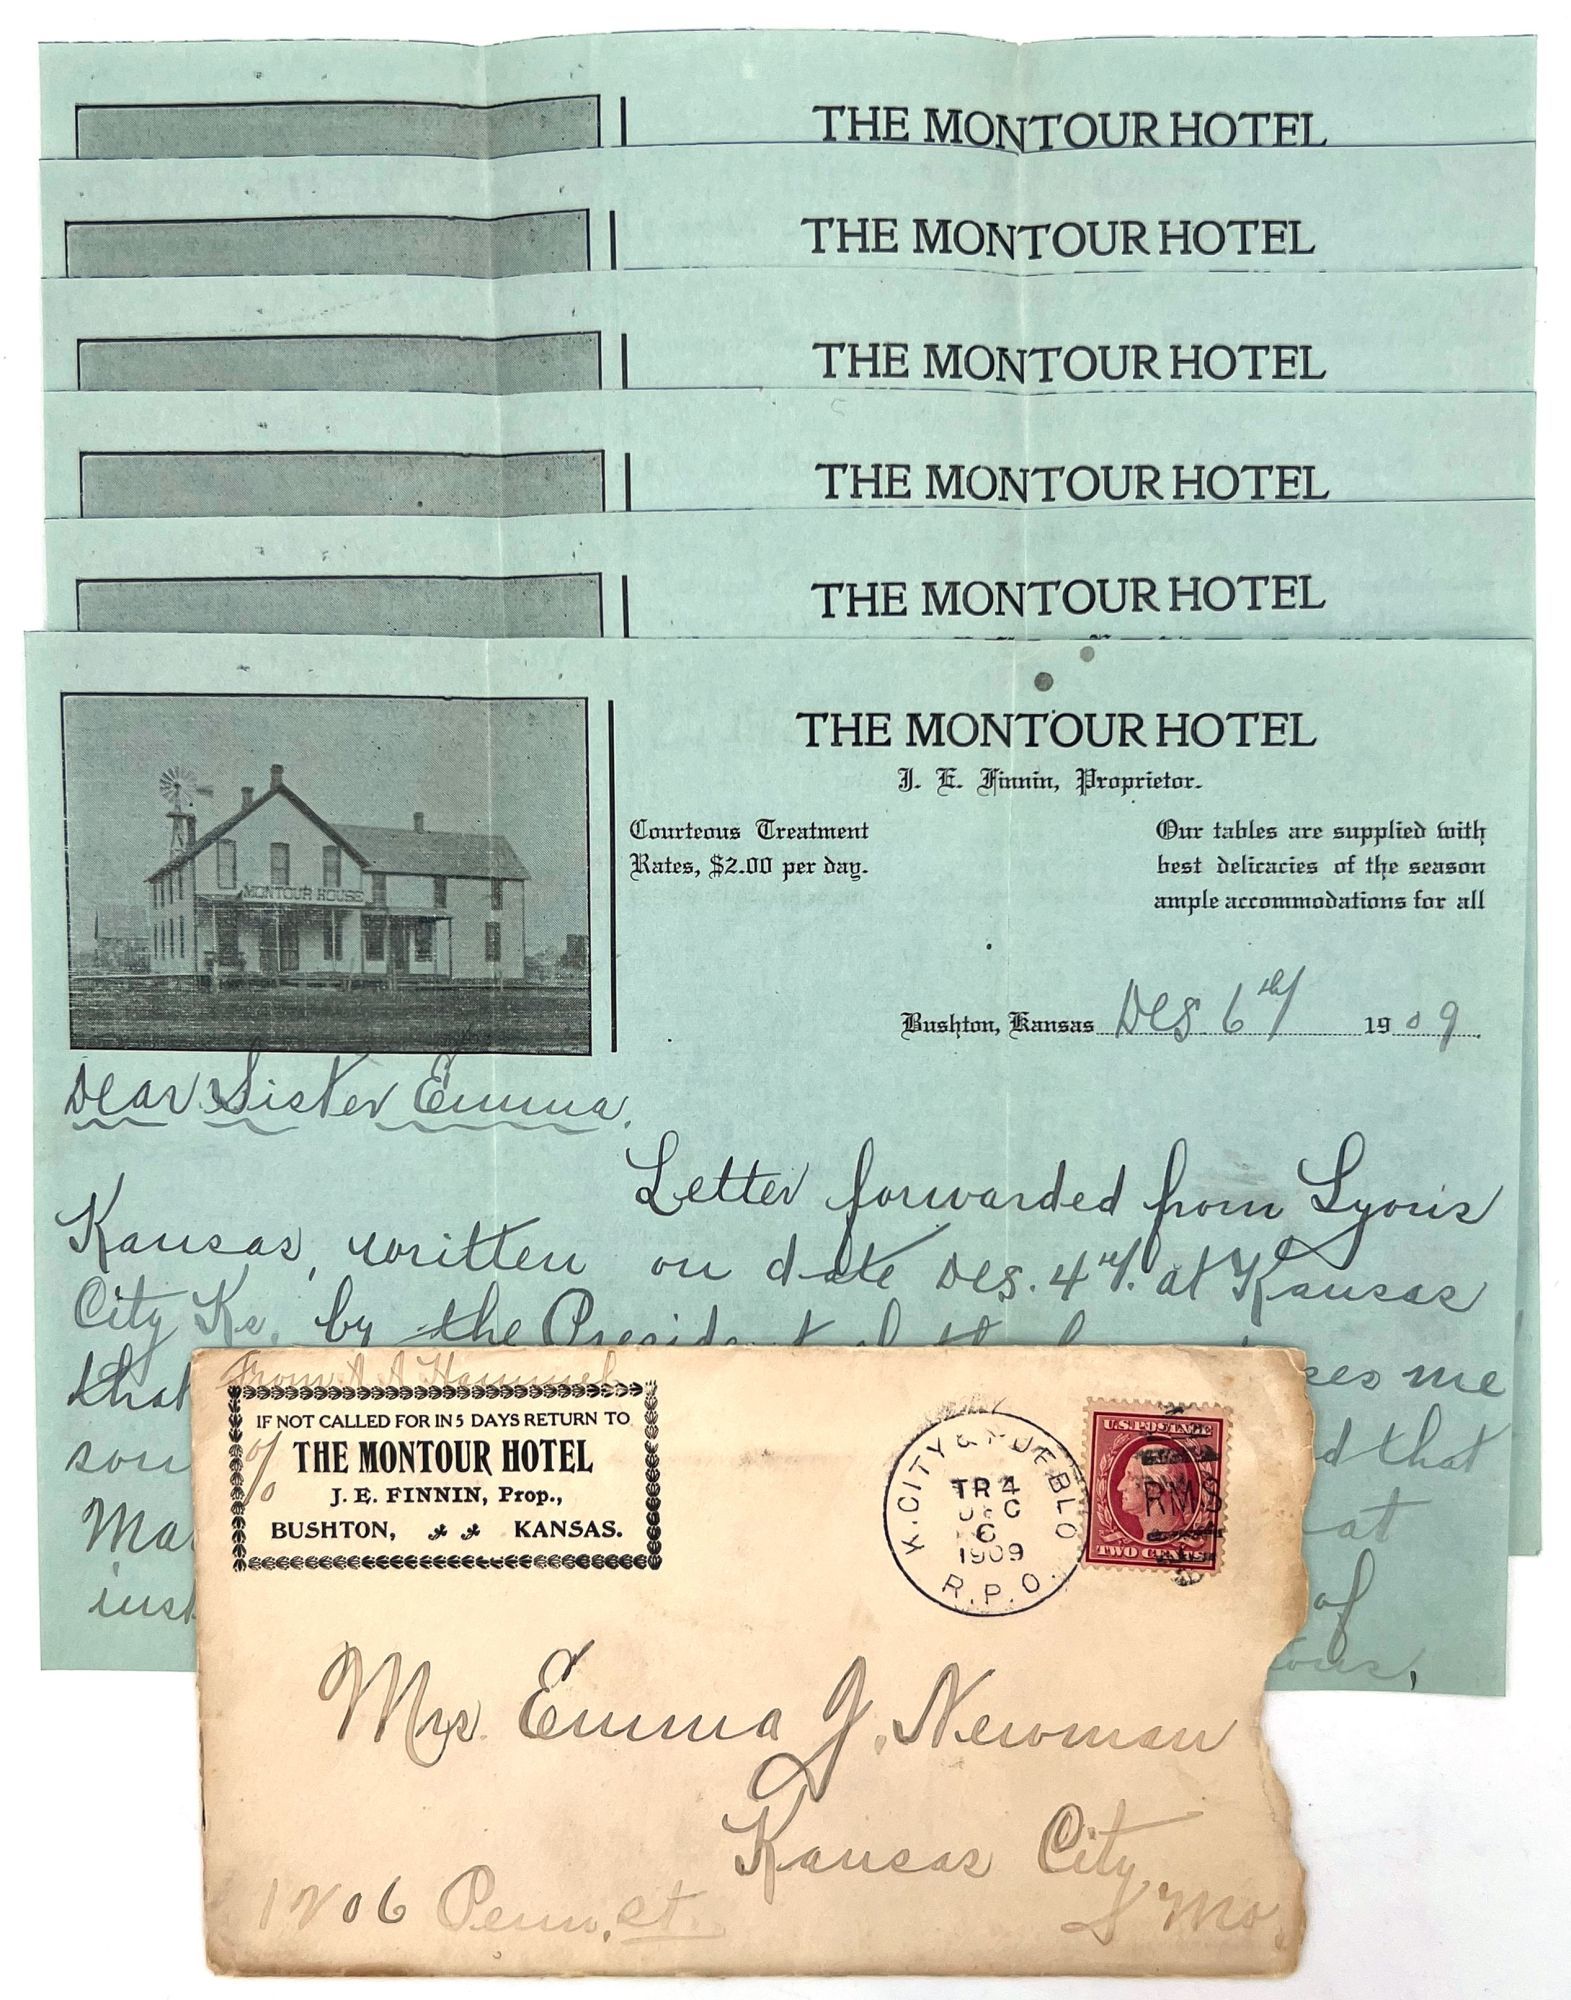 THE MONTOUR HOTEL
THE MONTOUR HOTEL
THE MONTOUR HOTEL
THE MONTOUR HOTEL
THE MONTOUR HOTEL
THE MONTOUR HOTEL
J. E. Finnin, Proprietor.
Courteous Treatment
Rates, $2.00 per day.
Our tables are supplied with
best delicacies of the season
ample accommodations for all
MONTOUR HOUSE
Bushton, Kansas Des 6th 1909
Dear Sister Emma,
Letter forwarded from Lyons
Kansas, written on date Des. 4th. at Kansas
City Ks. by the President of the
that me
that
at
of
From A A Hammel
IF NOT CALLED FOR IN 5 DAYS RETURN TO
% THE MONTOUR HOTEL
J. E. FINNIN, Prop.,
BUSHTON, KANSAS.
K. CITY & PUEBLO
TR 4
DEC
6
1909
R.P.O.
U.S. POSTAGE
RMS
TWO CENTS
Mrs. Emma J. Newman
Kansas City
1706 Penn. St. Mo.